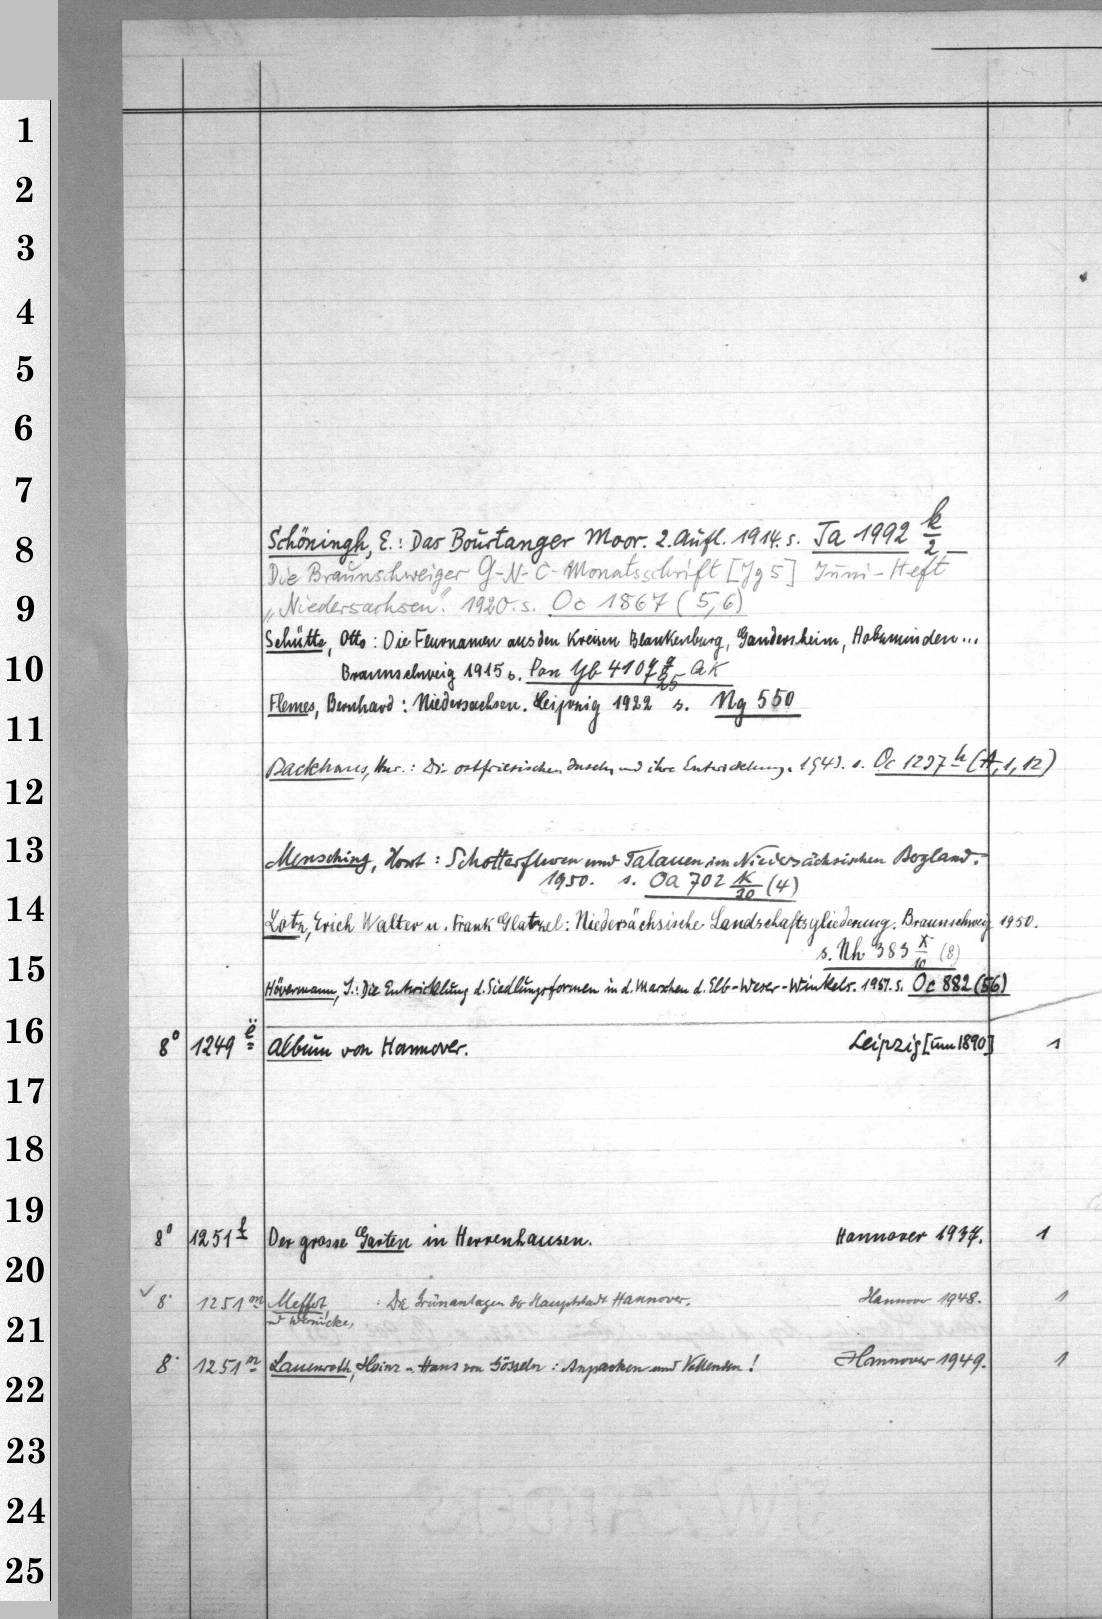 1
2
3
4
5
6
7
8
9
10
11
12
13
14
15
16
17
18
19
20
21
22
23
24
25
Schöningh, E.: Das Bourtanger Moor. 2. Aufl. 1914. s. Ja 1992 k/2
Die Braunschweiger G-N-C-Monatsschrift [Jg 5] Juni-Heft
„Niedersachsen". 1920. s. Oc 1867 (5,6)
Schütte, Otto: Die Flurnamen aus den Kreisen Blankenburg, Gandersheim, Holzminden...
Braunschweig 1915 s. Pan Yb 4107 AK
Flemes, Bernhard: Niedersachsen. Leipzig 1922 s. Ng 550
Backhaus, Herm.: Die ostfriesischen Inseln und ihre Entwicklung. 1943. s. Oc 1237 h (A, 1, 12)
Mensching, Horst: Schotterfluren und Talauen im Niedersächsischen Bergland.
1950. s. Oa 702 K/30 (4)
Lotz, Erich Walter u. Frank Glatzel: Niedersächsische Landschaftsgliederung. Braunschweig 1950.
s. Nh 383 X/10 (8)
Hövermann, J.: Die Entwicklung d. Siedlungsformen in d. Marschen d. Elb-Weser-Winkels. 1951. s. Oc 882 (56)
8° 1249 ë Album von Hannover. Leipzig [um 1890] 1
8° 1251 f Der grosse Garten in Herrenhausen. Hannover 1937. 1
8° 1251 m Meffert : Die Grünanlagen der Hauptstadt Hannover. Hannover 1948. 1
und Wernicke,
8° 1251 n Lauenroth, Heinz - Hans von Gösseln: Anpacken und Vollenden! Hannover 1949. 1